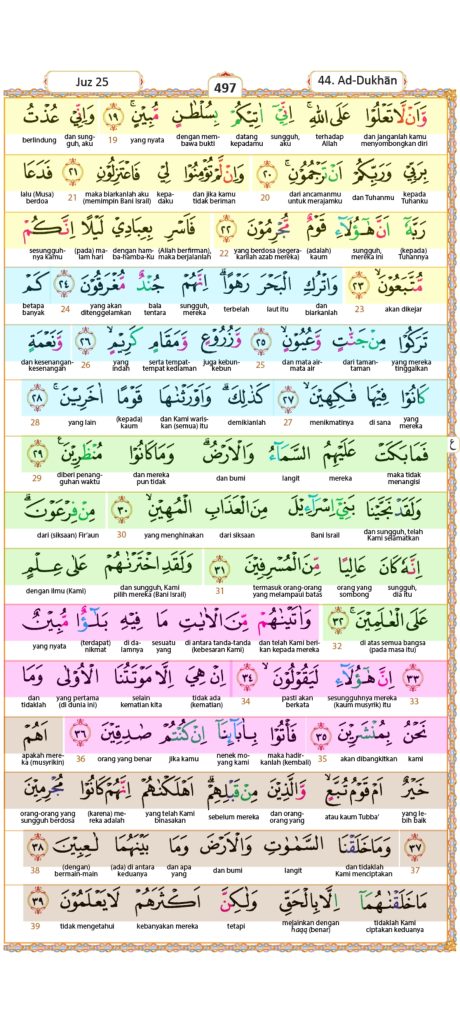 Juz 25
497
44. Ad-Dukhān
وَّاَنْ لَّا تَعْلُوْا عَلَى اللّٰهِ ۚ اِنِّيْٓ اٰتِيْكُمْ بِسُلْطٰنٍ مُّبِيْنٍ ۚ ١٩ وَاِنِّيْ عُذْتُ
dan janganlah kamu menyombongkan diri terhadap Allah sungguh, aku datang kepadamu dengan membawa bukti yang nyata 19 dan sungguh, aku berlindung
بِرَبِّيْ وَرَبِّكُمْ اَنْ تَرْجُمُوْنِ ۚ ٢٠ وَاِنْ لَّمْ تُؤْمِنُوْا لِيْ فَاعْتَزِلُوْنِ ٢١ فَدَعَا
kepada Tuhanku dan Tuhanmu dari ancamanmu untuk merajamku 20 dan jika kamu tidak beriman kepadaku maka biarkanlah aku (memimpin Bani Israil) 21 lalu (Musa) berdoa
رَبَّهٗٓ اَنَّ هٰٓؤُلَاۤءِ قَوْمٌ مُّجْرِمُوْنَ ٢٢ فَاَسْرِ بِعِبَادِيْ لَيْلًا اِنَّكُمْ
(kepada) Tuhannya sungguh, mereka ini kaum (adalah) yang berdosa (segerakanlah azab mereka) 22 (Allah berfirman), maka berjalanlah dengan hamba-hamba-Ku (pada) malam hari sesungguhnya kamu
مُّتَّبَعُوْنَ ۙ ٢٣ وَاتْرُكِ الْبَحْرَ رَهْوًا ۗ اِنَّهُمْ جُنْدٌ مُّغْرَقُوْنَ ٢٤ كَمْ
akan dikejar 23 dan biarkanlah laut itu terbelah sungguh, mereka bala tentara yang akan ditenggelamkan 24 betapa banyak
تَرَكُوْا مِنْ جَنّٰتٍ وَّعُيُوْنٍ ۙ ٢٥ وَّزُرُوْعٍ وَّمَقَامٍ كَرِيْمٍ ۙ ٢٦ وَّنَعْمَةٍ
yang mereka tinggalkan dari taman-taman dan mata air-mata air 25 juga kebun-kebun serta tempat-tempat kediaman yang indah 26 dan kesenangan-kesenangan
كَانُوْا فِيْهَا فٰكِهِيْنَ ۙ ٢٧ كَذٰلِكَ ۗ وَاَوْرَثْنٰهَا قَوْمًا اٰخَرِيْنَ ٢٨
yang mereka di sana menikmatinya 27 demikianlah dan Kami wariskan (semua) itu (kepada) kaum yang lain 28
فَمَا بَكَتْ عَلَيْهِمُ السَّمَاۤءُ وَالْاَرْضُ ۗ وَمَا كَانُوْا مُنْظَرِيْنَ ٢٩
maka tidak menangisi mereka langit dan bumi dan mereka pun tidak diberi penangguhan waktu 29
ع
وَلَقَدْ نَجَّيْنَا بَنِيْٓ اِسْرَاۤءِيْلَ مِنَ الْعَذَابِ الْمُهِيْنِ ۙ ٣٠ مِنْ فِرْعَوْنَ ۗ
dan sungguh, telah Kami selamatkan Bani Israil dari siksaan yang menghinakan 30 dari (siksaan) Fir'aun
اِنَّهٗ كَانَ عَالِيًا مِّنَ الْمُسْرِفِيْنَ ٣١ وَلَقَدِ اخْتَرْنٰهُمْ عَلٰى عِلْمٍ
sungguh, dia itu orang yang sombong termasuk orang-orang yang melampaui batas 31 dan sungguh, Kami pilih mereka (Bani Israil) dengan ilmu (Kami)
عَلَى الْعٰلَمِيْنَ ۚ ٣٢ وَاٰتَيْنٰهُمْ مِّنَ الْاٰيٰتِ مَا فِيْهِ بَلٰۤـؤٌا مُّبِيْنٌ
di atas semua bangsa (pada masa itu) 32 dan telah Kami berikan kepada mereka di antara tanda-tanda (kebesaran Kami) sesuatu yang di dalamnya (terdapat) nikmat yang nyata
٣٣ اِنَّ هٰٓؤُلَاۤءِ لَيَقُوْلُوْنَ ۙ ٣٤ اِنْ هِيَ اِلَّا مَوْتَتُنَا الْاُوْلٰى وَمَا
33 sesungguhnya mereka (kaum musyrik) itu pasti akan berkata 34 tidak ada (kematian) selain kematian kita yang pertama (di dunia ini) dan tidaklah
نَحْنُ بِمُنْشَرِيْنَ ٣٥ فَأْتُوْا بِاٰبَاۤىِٕنَآ اِنْ كُنْتُمْ صٰدِقِيْنَ ٣٦ اَهُمْ
kami akan dibangkitkan 35 maka hadirkanlah (kembali) nenek moyang kami jika kamu orang yang benar 36 apakah mereka (musyrikin)
خَيْرٌ اَمْ قَوْمُ تُبَّعٍ ۙ وَّالَّذِيْنَ مِنْ قَبْلِهِمْ ۗ اَهْلَكْنٰهُمْ ۖ اِنَّهُمْ كَانُوْا مُجْرِمِيْنَ
yang lebih baik atau kaum Tubba' dan orang-orang yang sebelum mereka yang telah Kami binasakan (karena) mereka adalah orang-orang yang sungguh berdosa
٣٧ وَمَا خَلَقْنَا السَّمٰوٰتِ وَالْاَرْضَ وَمَا بَيْنَهُمَا لٰعِبِيْنَ ٣٨
37 dan tidaklah Kami menciptakan langit dan bumi dan apa yang (ada) di antara keduanya (dengan) bermain-main 38
مَا خَلَقْنٰهُمَآ اِلَّا بِالْحَقِّ وَلٰكِنَّ اَكْثَرَهُمْ لَا يَعْلَمُوْنَ ٣٩
tidaklah Kami ciptakan keduanya melainkan dengan haqq (benar) tetapi kebanyakan mereka tidak mengetahui 39